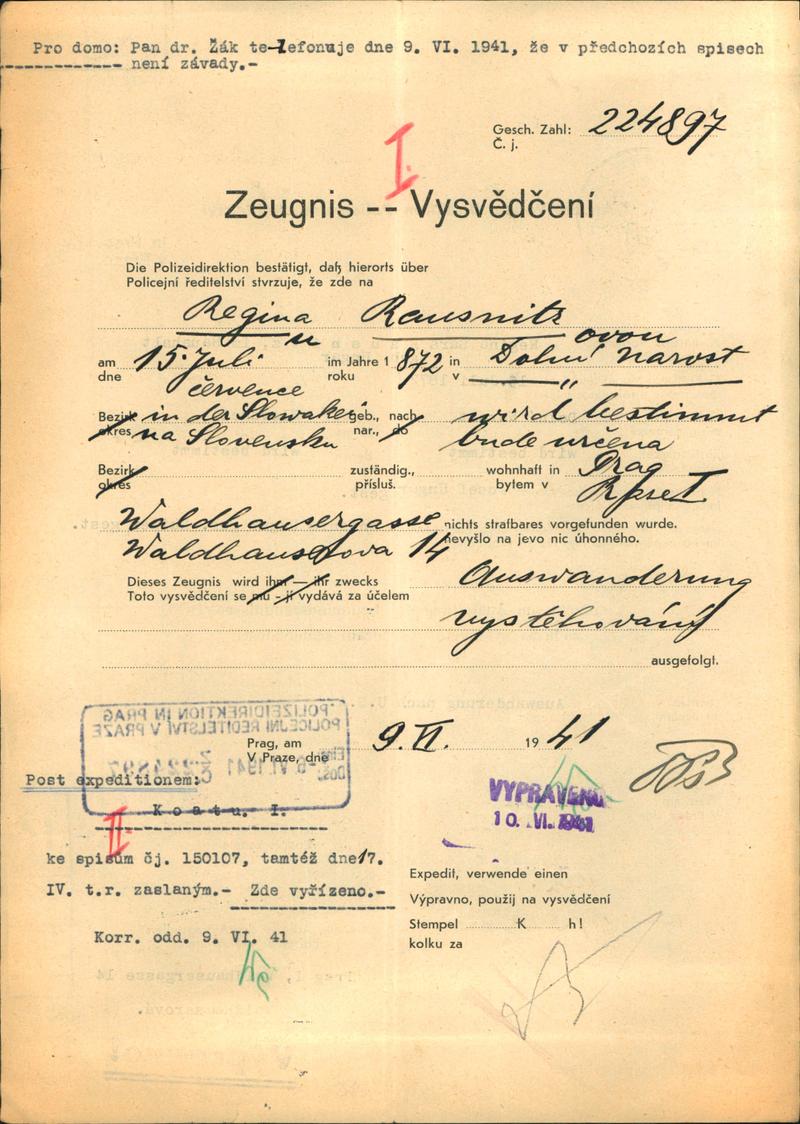 Pro domo: Pan dr. Žák telefonuje dne 9. VI. 1941, že v předchozích spisech
není závady.-
Gesch. Zahl: 224897
Č. j.
I.
Zeugnis -- Vysvědčení
Die Polizeidirektion bestätigt, daß hierorts über
Policejní ředitelství stvrzuje, že zde na
Regina Rausnitz
u ovou
am 15. Juli im Jahre 1872 in Dolní Narost
dne července roku v "
Bezirk in der Slowakei geb., nach wird bestimmt
okres na Slovensku nar., do bude určena
Bezirk zuständig., wohnhaft in Prag
okres přísluš. bytem v
Waldhausergasse nichts strafbares vorgefunden wurde.
Waldhauserova 14 nevyšlo na jevo nic úhonného.
Dieses Zeugnis wird ihm — ihr zwecks Auswanderung
Toto vysvědčení se mu - jí vydává za účelem
vystěhování
ausgefolgt.
POLIZEIDIREKTION IN PRAG
POLICEJNÍ ŘEDITELSTVÍ V PRAZE
Prag, am 9. VI. 1941
V Praze, dne
Post expeditionem:
VYPRAVENO
10. VI. 1941
Koatu. I.
II.
ke spisům čj. 150107, tamtéž dne 17.
IV. t.r. zaslaným.- Zde vyřízeno.-
Expedit, verwende einen
Výpravno, použij na vysvědčení
Stempel K h!
kolku za
Korr. odd. 9. VI. 41